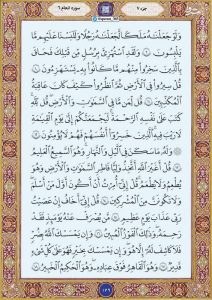 سوره انعام ۶ جزء ۷
وَلَوْ جَعَلْنَاهُ مَلَكًا لَجَعَلْنَاهُ رَجُلًا وَلَلَبَسْنَا عَلَيْهِمْ مَا
يَلْبِسُونَ ۹ وَلَقَدِ اسْتُهْزِئَ بِرُسُلٍ مِنْ قَبْلِكَ فَحَاقَ
بِالَّذِينَ سَخِرُوا مِنْهُمْ مَا كَانُوا بِهِ يَسْتَهْزِئُونَ ۱۰
قُلْ سِيرُوا فِي الْأَرْضِ ثُمَّ انْظُرُوا كَيْفَ كَانَ عَاقِبَةُ
الْمُكَذِّبِينَ ۱۱ قُلْ لِمَنْ مَا فِي السَّمَاوَاتِ وَالْأَرْضِ قُلْ لِلَّهِ
كَتَبَ عَلَى نَفْسِهِ الرَّحْمَةَ لَيَجْمَعَنَّكُمْ إِلَى يَوْمِ الْقِيَامَةِ
لَا رَيْبَ فِيهِ الَّذِينَ خَسِرُوا أَنْفُسَهُمْ فَهُمْ لَا يُؤْمِنُونَ ۱۲
وَلَهُ مَا سَكَنَ فِي اللَّيْلِ وَالنَّهَارِ وَهُوَ السَّمِيعُ الْعَلِيمُ
۱۳ قُلْ أَغَيْرَ اللَّهِ أَتَّخِذُ وَلِيًّا فَاطِرِ السَّمَاوَاتِ وَالْأَرْضِ وَهُوَ
يُطْعِمُ وَلَا يُطْعَمُ قُلْ إِنِّي أُمِرْتُ أَنْ أَكُونَ أَوَّلَ مَنْ أَسْلَمَ
وَلَا تَكُونَنَّ مِنَ الْمُشْرِكِينَ ۱۴ قُلْ إِنِّي أَخَافُ إِنْ عَصَيْتُ
رَبِّي عَذَابَ يَوْمٍ عَظِيمٍ ۱۵ مَنْ يُصْرَفْ عَنْهُ يَوْمَئِذٍ فَقَدْ
رَحِمَهُ وَذَلِكَ الْفَوْزُ الْمُبِينُ ۱۶ وَإِنْ يَمْسَسْكَ اللَّهُ بِضُرٍّ
فَلَا كَاشِفَ لَهُ إِلَّا هُوَ وَإِنْ يَمْسَسْكَ بِخَيْرٍ فَهُوَ عَلَى كُلِّ شَيْءٍ
قَدِيرٌ ۱۷ وَهُوَ الْقَاهِرُ فَوْقَ عِبَادِهِ وَهُوَ الْحَكِيمُ الْخَبِيرُ ۱۸
۱۲۹